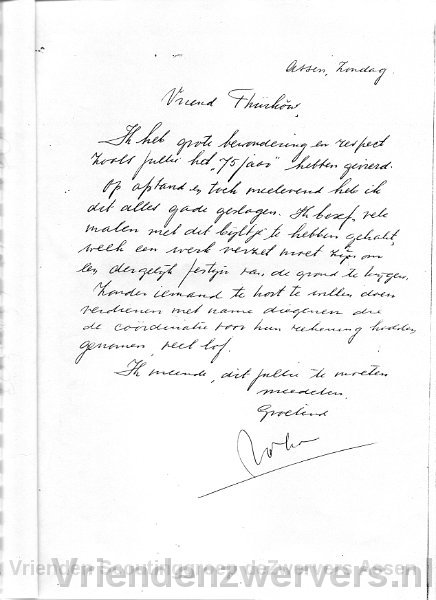 Assen, Zondag.
Vriend Thurkow,
Ik heb grote bewondering en respect
zoals jullie het "75 jaar" hebben gevierd.
Op afstand en toch meelevend heb ik
dit alles gade geslagen. Ik besef, vele
malen met dit bijltje te hebben gehakt,
welk een werk verzet moet zijn om
een dergelijk festijn van de grond te krijgen.
Zonder iemand te kort te willen doen
verdienen met name diegenen die
de coördinatie voor hun rekening hadden
genomen veel lof.
Ik meende, dit jullie te moeten
meedelen.
Groetend
Vrienden Scoutinggroep deZwervers Assen
Vriendenzwervers.nl